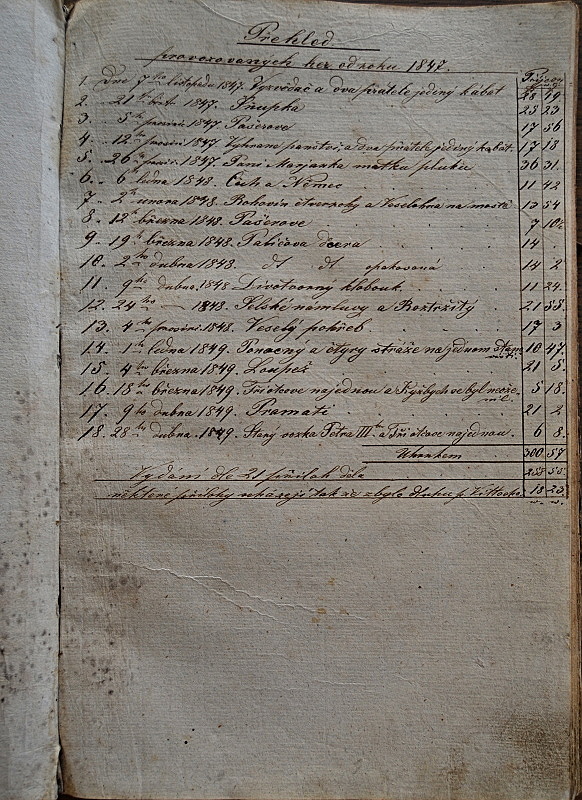 Přehled
provozovaných her od roku 1847.
Příjem
1. Dne 7ho listopadu 1847. Vyzvědač a dva přátelé jedený kabát 28 49
2. „ 21 „ 1847. Šnupka 23 23
3. „ 5ho prosince 1847. Pašerové 17 56
4. „ 12ho prosince 1847. a dva přátelé jedený kabát. 17 18
5. „ 26ho prosince 1847. Paní Marjanka matka pluku 36 31
6. „ 6ho ledna 1848. Čech a Němec 11 42
7. „ 2ho února 1848. Rohovín čtverrohý a Veselohra na mostě 13 54
8. „ 12ho března 1848. Pašerové 7
9. „ 19ho března 1848. Paličova dcera 14
10. „ 2ho dubna 1848. dt dt opakovaná 14 2
11. „ 9ho dubna 1848. Divotvorný klobouk 11 24
12. 24ho „ 1848. Selské námluvy a Roztržitý 21 58
13. „ 4ho prosince 1848. Veselý pohřeb 17 3
14. „ 1ho ledna 1849. Ponocný a čtyry stráže na jednom 10 47
15. „ 4ho března 1849. Loupež 21 5
16. 18ho března 1849. Tři otcové najednou a Kýžbych se byl neože- 5 18
nil.
17. 9ho dubna 1849. Pramáti 21 2
18. 28ho dubna 1849. Starý vozka Petra IIIho a Tři otcové najednou. 6 8
Uhrnkem 300 58
Vydání dle 21 příloh dělá
některé přílohy scházejí tak že zbylo dluhu p. 18 23